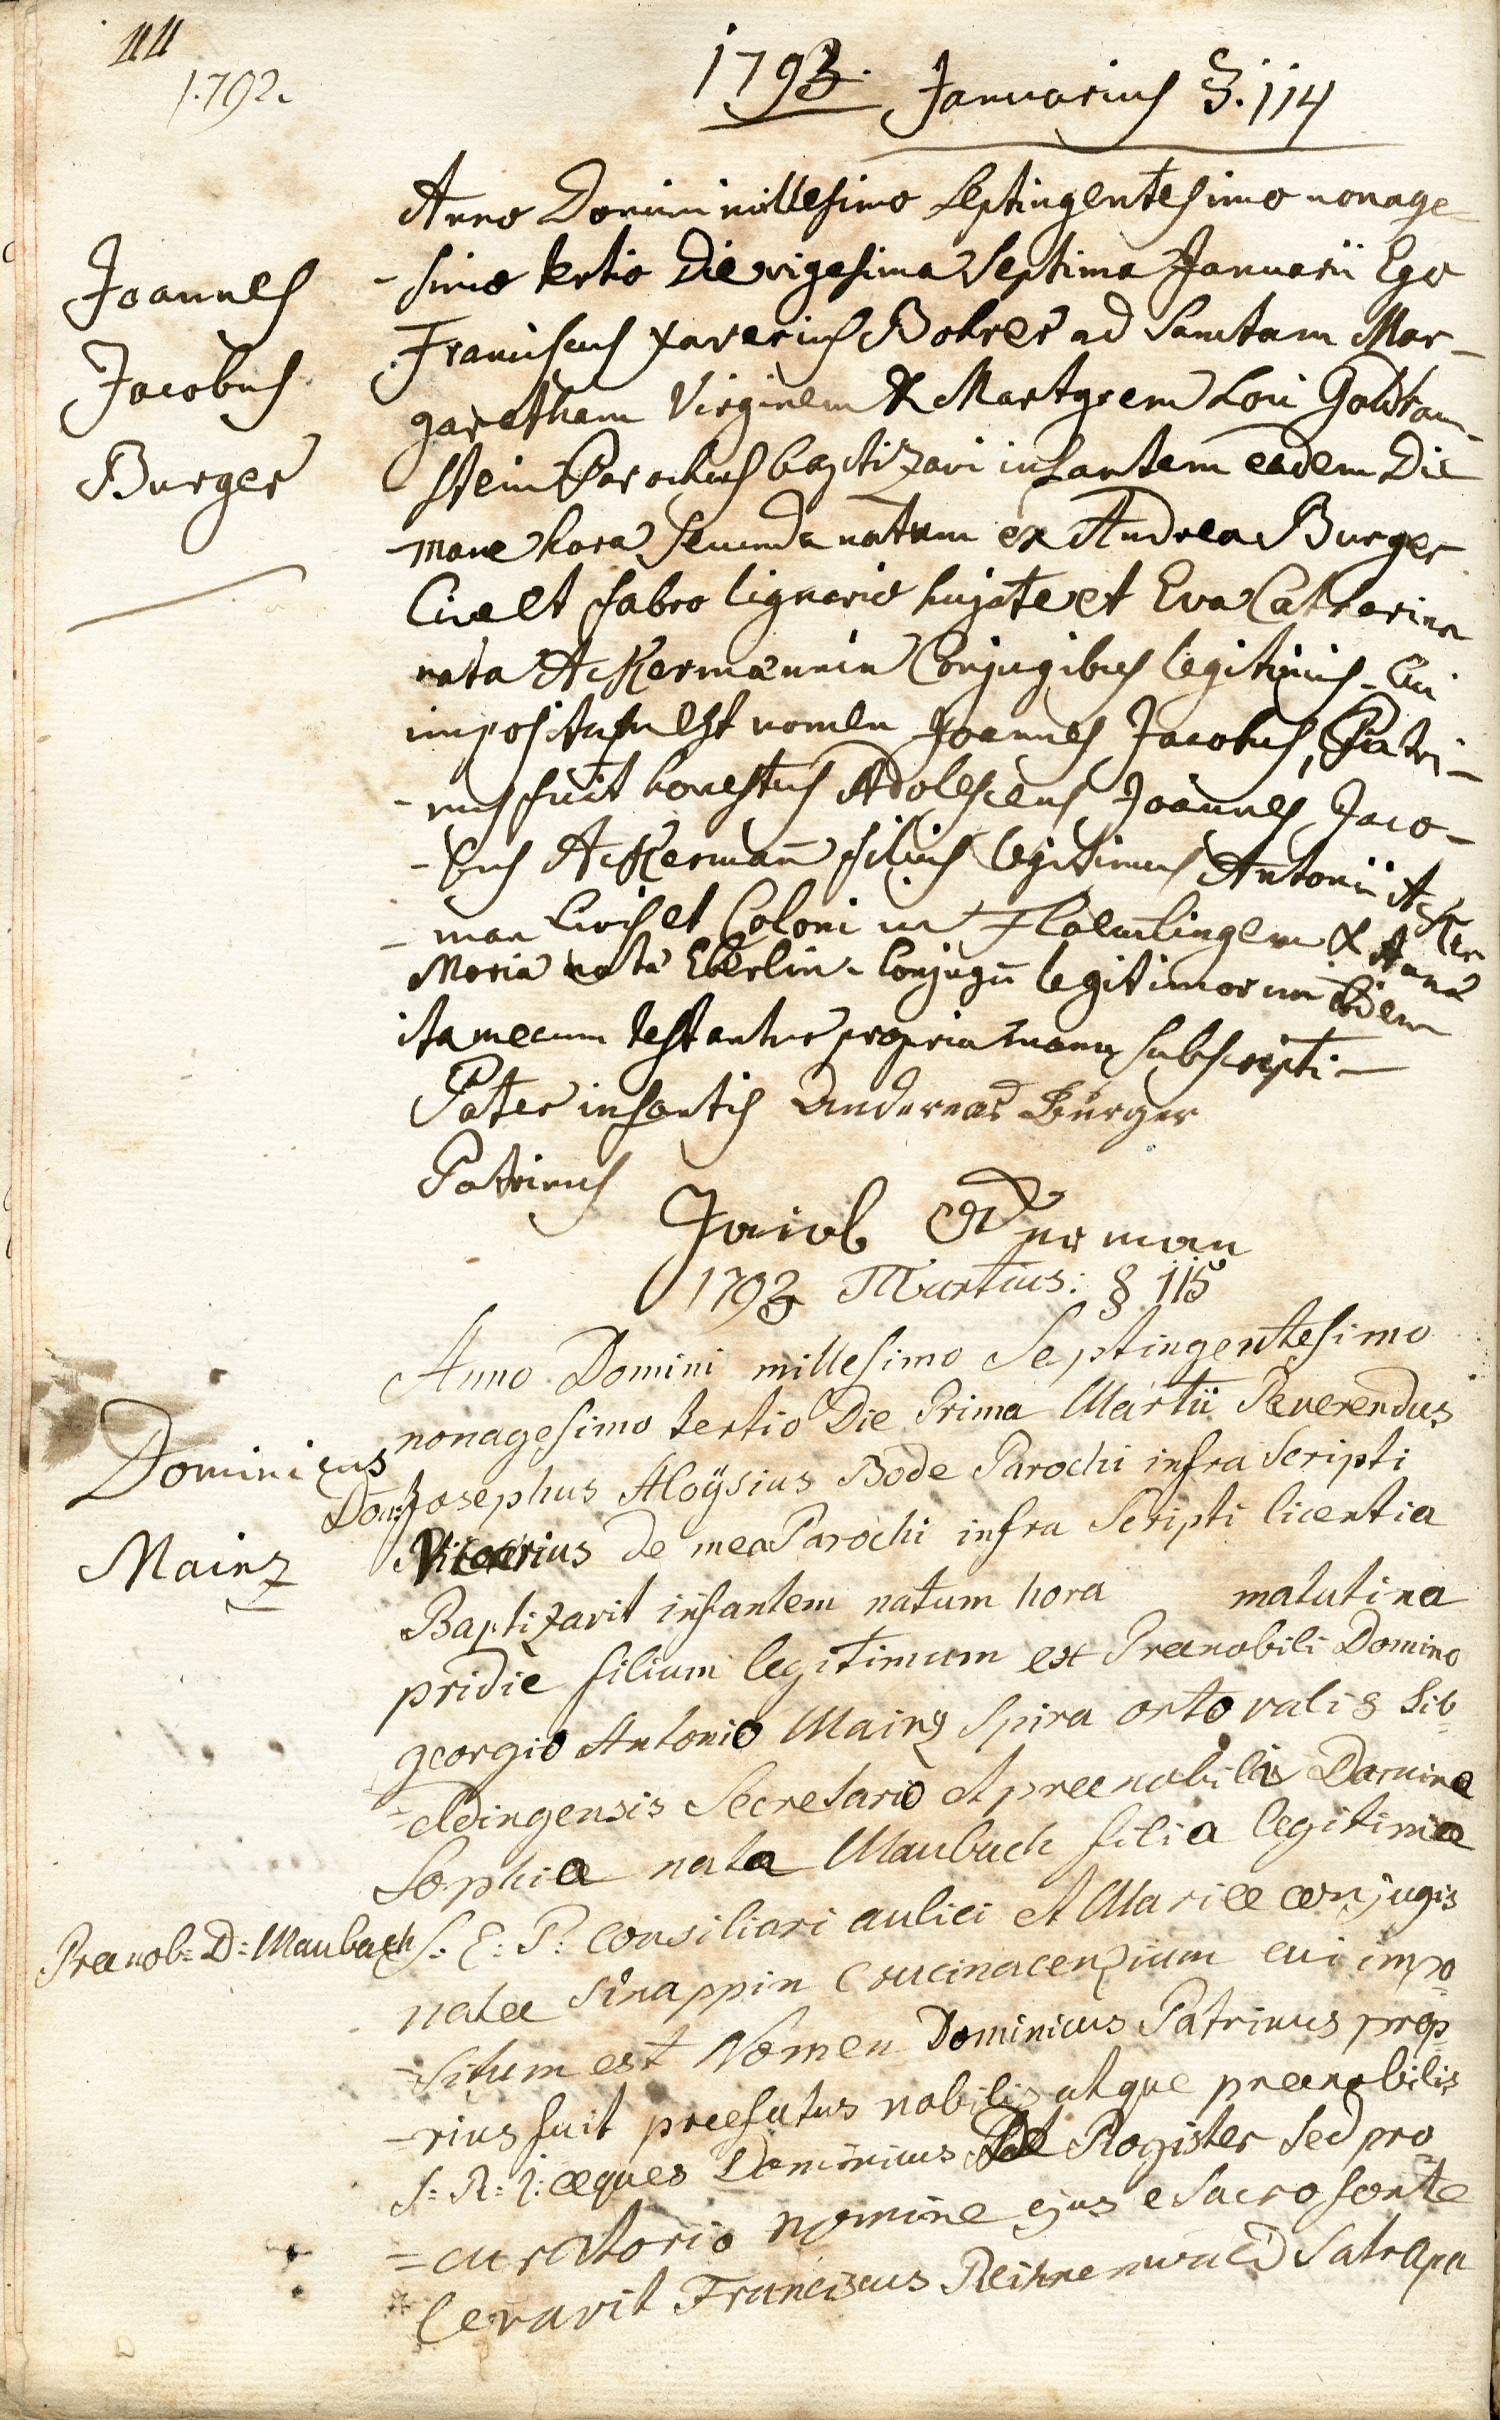 44
1792.
1793. Januarius §. 114
Anno Domini millesimo Septingentesimo nonage-
Joannes
Jacobus
Burger
-simo tertio Die vigesima Septima Januarii Ego
Franciscus Xaverius Bohrer ad Sanctam Mar-
garetham Virginem & Martyrem Loci
stein Parochus baptizavi infantem eadem Die
mane hora Secunda natum ex Andrea Burger
Cive et fabro lignario hujate et Eva Catharina
nata Ackermännin Conjugibus legitimis. Cui
impositum est nomen Joannes Jacobus, Patri-
-nus fuit honestus Adolescens Joannes Jaco-
-bus Ackermañ filius legitimus Antonii Acker
-man Civis et Coloni in & Anna
Maria nata Eberlin. Conjugū legitimorum Eidem
ita mecum testantur propria manu subscripti-
Pater infantis Andereas Burger
Patrinus
Jacob Ackerman
1793 Martius: § 115
Anno Domini millesimo Septingentesimo
nonagesimo tertio Die Prima Martii Reverendus
Dominicus
Mainz
Doñ: Josephus Aloÿsius Bode Parochi infra Scripti
Vicarius de mea Parochi infra Scripti licentia
Baptizavit infantem natum hora matutina
pridie filium legitimum ex Praenobili Domino
georgio Antonio Mainz Spira orto vallis Sib
=eldingensis Secretario et praenobili Domina
Sophia nata Maubach filia legitima
Praenob: D: Maubach S: E: P: Consiliari aulici et Mariae conjugis
natae Sinappin Crucinacensium cui impo
=situm est Nomen Dominicus Patrinus prop
-rius fuit praefatus nobilis atque praenobilis
S: R: J: aeques Dominicus De Rogister Sed pro
=curatorio nomine ejus e Sacro fonte
Levavit Franciscus Satrapa